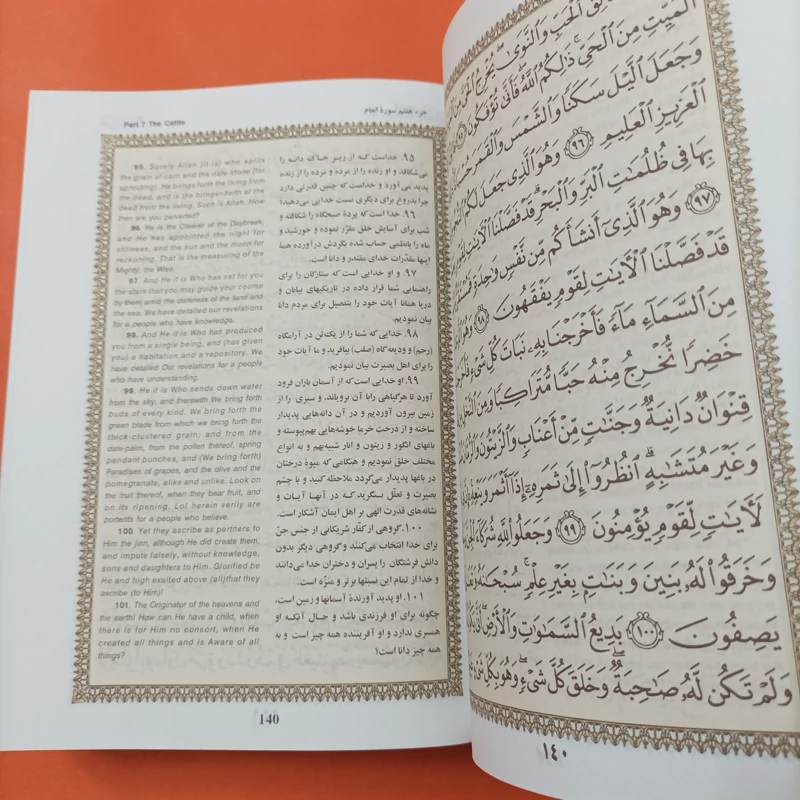 Part 7 The Cattle
جزء هفتم سورهٔ انعام
95. Surely Allah (it is) who splits
the grain of corn and the date stone (for
sprouting). He brings forth the living from
the dead, and is the bringer-forth of the
dead from the living. Such is Allah. How
then are you perverted?
96. He is the Cleaver of the Daybreak,
and He has appointed the night for
stillness, and the sun and the moon for
reckoning. That is the measuring of the
Mighty, the Wise.
97. And He it is Who has set for you
the stars that you may guide your course
by them amid the darkness of the land and
the sea. We have detailed our revelations
for a people who have knowledge.
98. And He it is Who has produced
you from a single being, and (has given
you) a habitation and a repository. We
have detailed Our revelations for a people
who have understanding.
99. He it is Who sends down water
from the sky, and therewith We bring forth
buds of every kind. We bring forth the
green blade from which we bring forth the
thick-clustered grain; and from the
date-palm, from the pollen thereof, spring
pendant bunches, and (We bring forth)
Paradises of grapes, and the olive and the
pomegranate, alike and unlike. Look on
the fruit thereof, when they bear fruit, and
on its ripening. Lo! herein verily are
portents for a people who believe.
100. Yet they ascribe as partners to
Him the jinn, although He did create them,
and impute falsely, without knowledge,
sons and daughters to Him. Glorified be
He and high exalted above (all)that they
ascribe (to Him)!
101. The Originator of the heavens and
the earth! How can He have a child, when
there is for Him no consort, when He
created all things and is Aware of all
things?
۹۵. خداست که از زیـر خـاک دانـه را
می‌شکافد و او زنده را از مرده و مرده را از زنده
پدید می آورد و خدا که چنین قدرتی دارد
چرا بدروغ برای دیگری نسبت خدایی می‌دهید؟
۹۶. خدا است که پردهٔ صبحگاه را شکافته و
شب برای آسایش خلق مقرّر نموده و خورشید و
ماه را بانظمی حساب شده بگردش درآورده همهٔ
اینها مقدّرات خدای مقتدر و دانا است.
۹۷. و او خدایی است که ستارگان را برای
راهنمایی شما قرار داده تا در تاریکیهای بیابان و
دریا همانا آیات خود را بتفصیل برای مردم دانا
بیان نمودیم.
۹۸. او خدایی که شما را از یک‌تن در آرامگاه
(رحم) و ودیعه‌گاه (صلب) بیافرید و ما آیات خود
را برای اهل بصیرت بیان نمودیم.
۹۹. او خدایی است که از آسمان باران فرود
آورد تا هرگیاهی رابا آن برویاند. و سبزی را از
زمین بیرون آوردیم و در آن دانه‌هایی پدیدار
ساخته و از درخت خرما خوشه‌هایی بهم‌پیوسته و
باغهای انگور و زیتون و انار شبیه‌بهم و به انواع
مختلف خلق نمودیم و هنگامی‌که میوهٔ درختان
در باغها پدیدار می‌گردد ملاحظه کنید و با چشم
بصیرت و تعقّل بـنگرید کـه در آنهـا آیـات و
نشانه‌های قدرت الهی بر اهل ایمان آشکار است.
۱۰۰. گروهی از کفّار شریکانی از جنس جنّ
برای خدا انتخاب می‌کنند وگروهی دیگر بدون
دانش فرشتگان را پسران و دختران خدا می‌دانند
و خدا از تمام این نسبتها برتر و منزّه است.
۱۰۱. او پدید آورندهٔ آسمانها و زمین است،
چگونه برای او فرزندی باشد و حـال آنکـه او
همسری ندارد و او آفریننده همه چیز است و به
همه چیز دانا است؟
140
ٱلۡحَبِّ وَٱلنَّوَىٰ يُخۡرِجُ
ٱلۡمَيِّتِ مِنَ ٱلۡحَيِّ ذَٰلِكُمُ ٱللَّهُ فَأَنَّىٰ تُؤۡفَكُونَ
وَجَعَلَ ٱلَّيۡلَ سَكَنٗا وَٱلشَّمۡسَ وَٱلۡقَمَرَ
ٱلۡعَزِيزِ ٱلۡعَلِيمِ ﴿٩٦﴾ وَهُوَ ٱلَّذِي جَعَلَ لَكُمُ
بِهَا فِي ظُلُمَٰتِ ٱلۡبَرِّ وَٱلۡبَحۡرِ قَدۡ فَصَّلۡنَا ٱلۡأٓيَٰتِ لِقَوۡمٖ
﴿٩٧﴾ وَهُوَ ٱلَّذِيٓ أَنشَأَكُم مِّن نَّفۡسٖ وَٰحِدَةٖ
قَدۡ فَصَّلۡنَا ٱلۡأٓيَٰتِ لِقَوۡمٖ يَفۡقَهُونَ ﴿٩٨﴾ وَهُوَ
مِنَ ٱلسَّمَآءِ مَآءٗ فَأَخۡرَجۡنَا بِهِۦ نَبَاتَ كُلِّ شَيۡءٖ
خَضِرٗا نُّخۡرِجُ مِنۡهُ حَبّٗا مُّتَرَاكِبٗا وَمِنَ
قِنۡوَانٞ دَانِيَةٞ وَجَنَّٰتٖ مِّنۡ أَعۡنَابٖ وَٱلزَّيۡتُونَ
وَغَيۡرَ مُتَشَٰبِهٍ ٱنظُرُوٓاْ إِلَىٰ ثَمَرِهِۦٓ إِذَآ أَثۡمَرَ وَيَنۡعِهِۦٓ
لَأٓيَٰتٖ لِّقَوۡمٖ يُؤۡمِنُونَ ﴿٩٩﴾ وَجَعَلُواْ لِلَّهِ شُرَكَآءَ
وَخَرَقُواْ لَهُۥ بَنِينَ وَبَنَٰتِۭ بِغَيۡرِ عِلۡمٖ سُبۡحَٰنَهُۥ
يَصِفُونَ ﴿١٠٠﴾ بَدِيعُ ٱلسَّمَٰوَٰتِ وَٱلۡأَرۡضِ أَنَّىٰ
وَلَمۡ تَكُن لَّهُۥ صَٰحِبَةٞ وَخَلَقَ كُلَّ شَيۡءٖ وَهُوَ بِكُلِّ
١٤٠